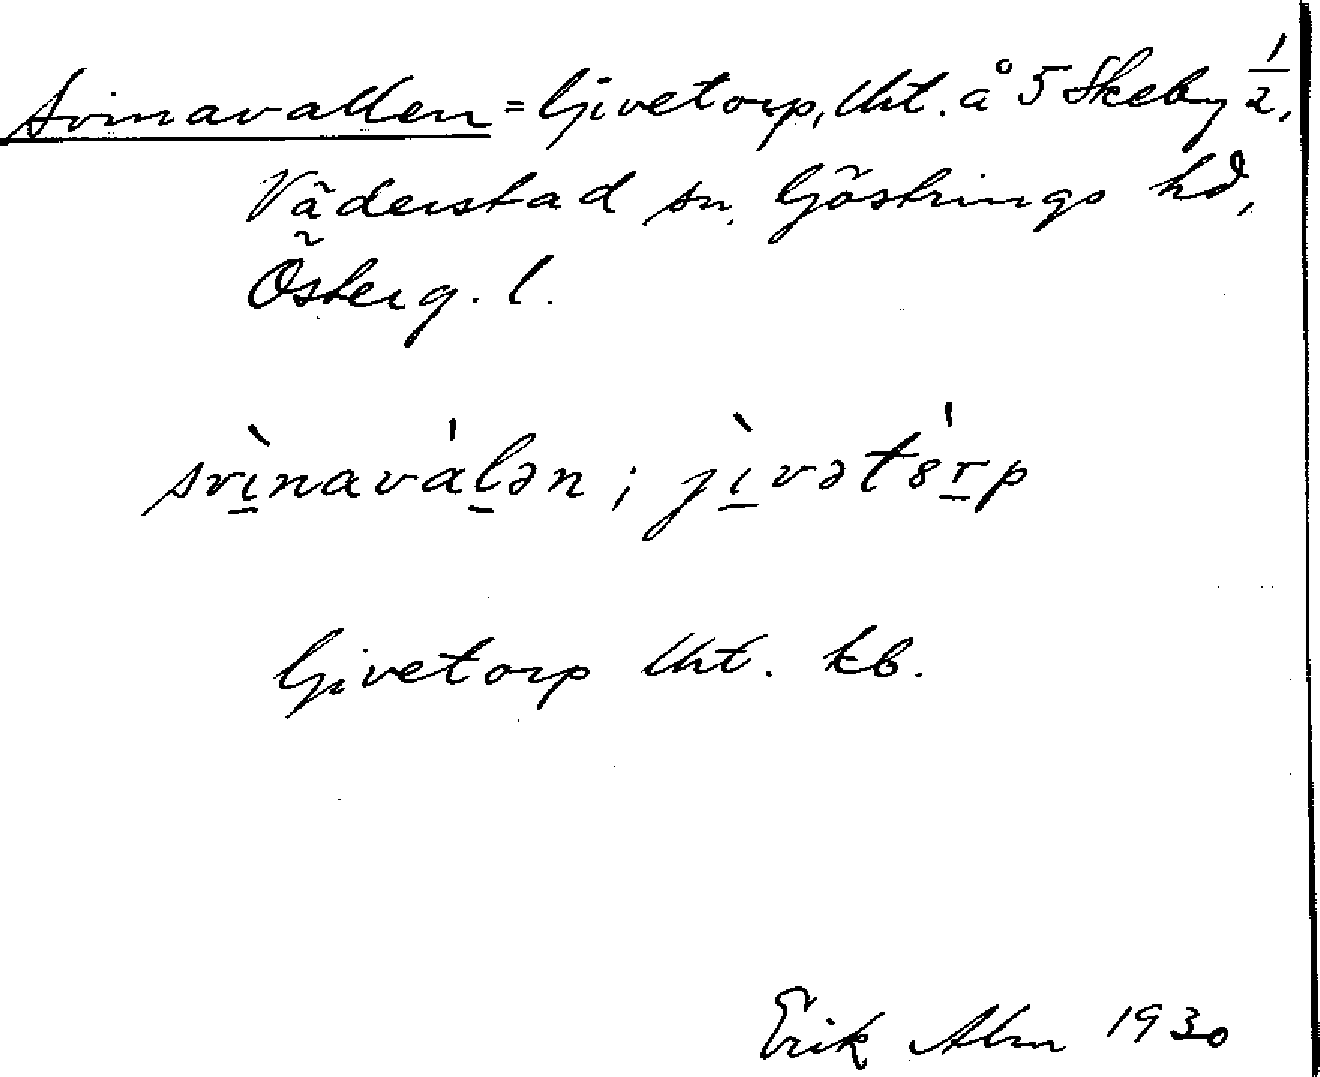 Svinavallen = Givetorp, lht. å 5 Skeby 1/2,
Väderstad sn. Göstrings hd,
Österg. l.
svì̱navàl̠ən ; jì̱vətȣ̀r̠p
Givetorp lht. kb.
Erik Alm 1930